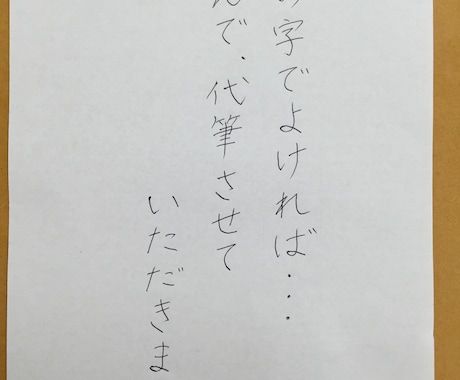 字でよければ・・・
で、代筆させて
いただきま